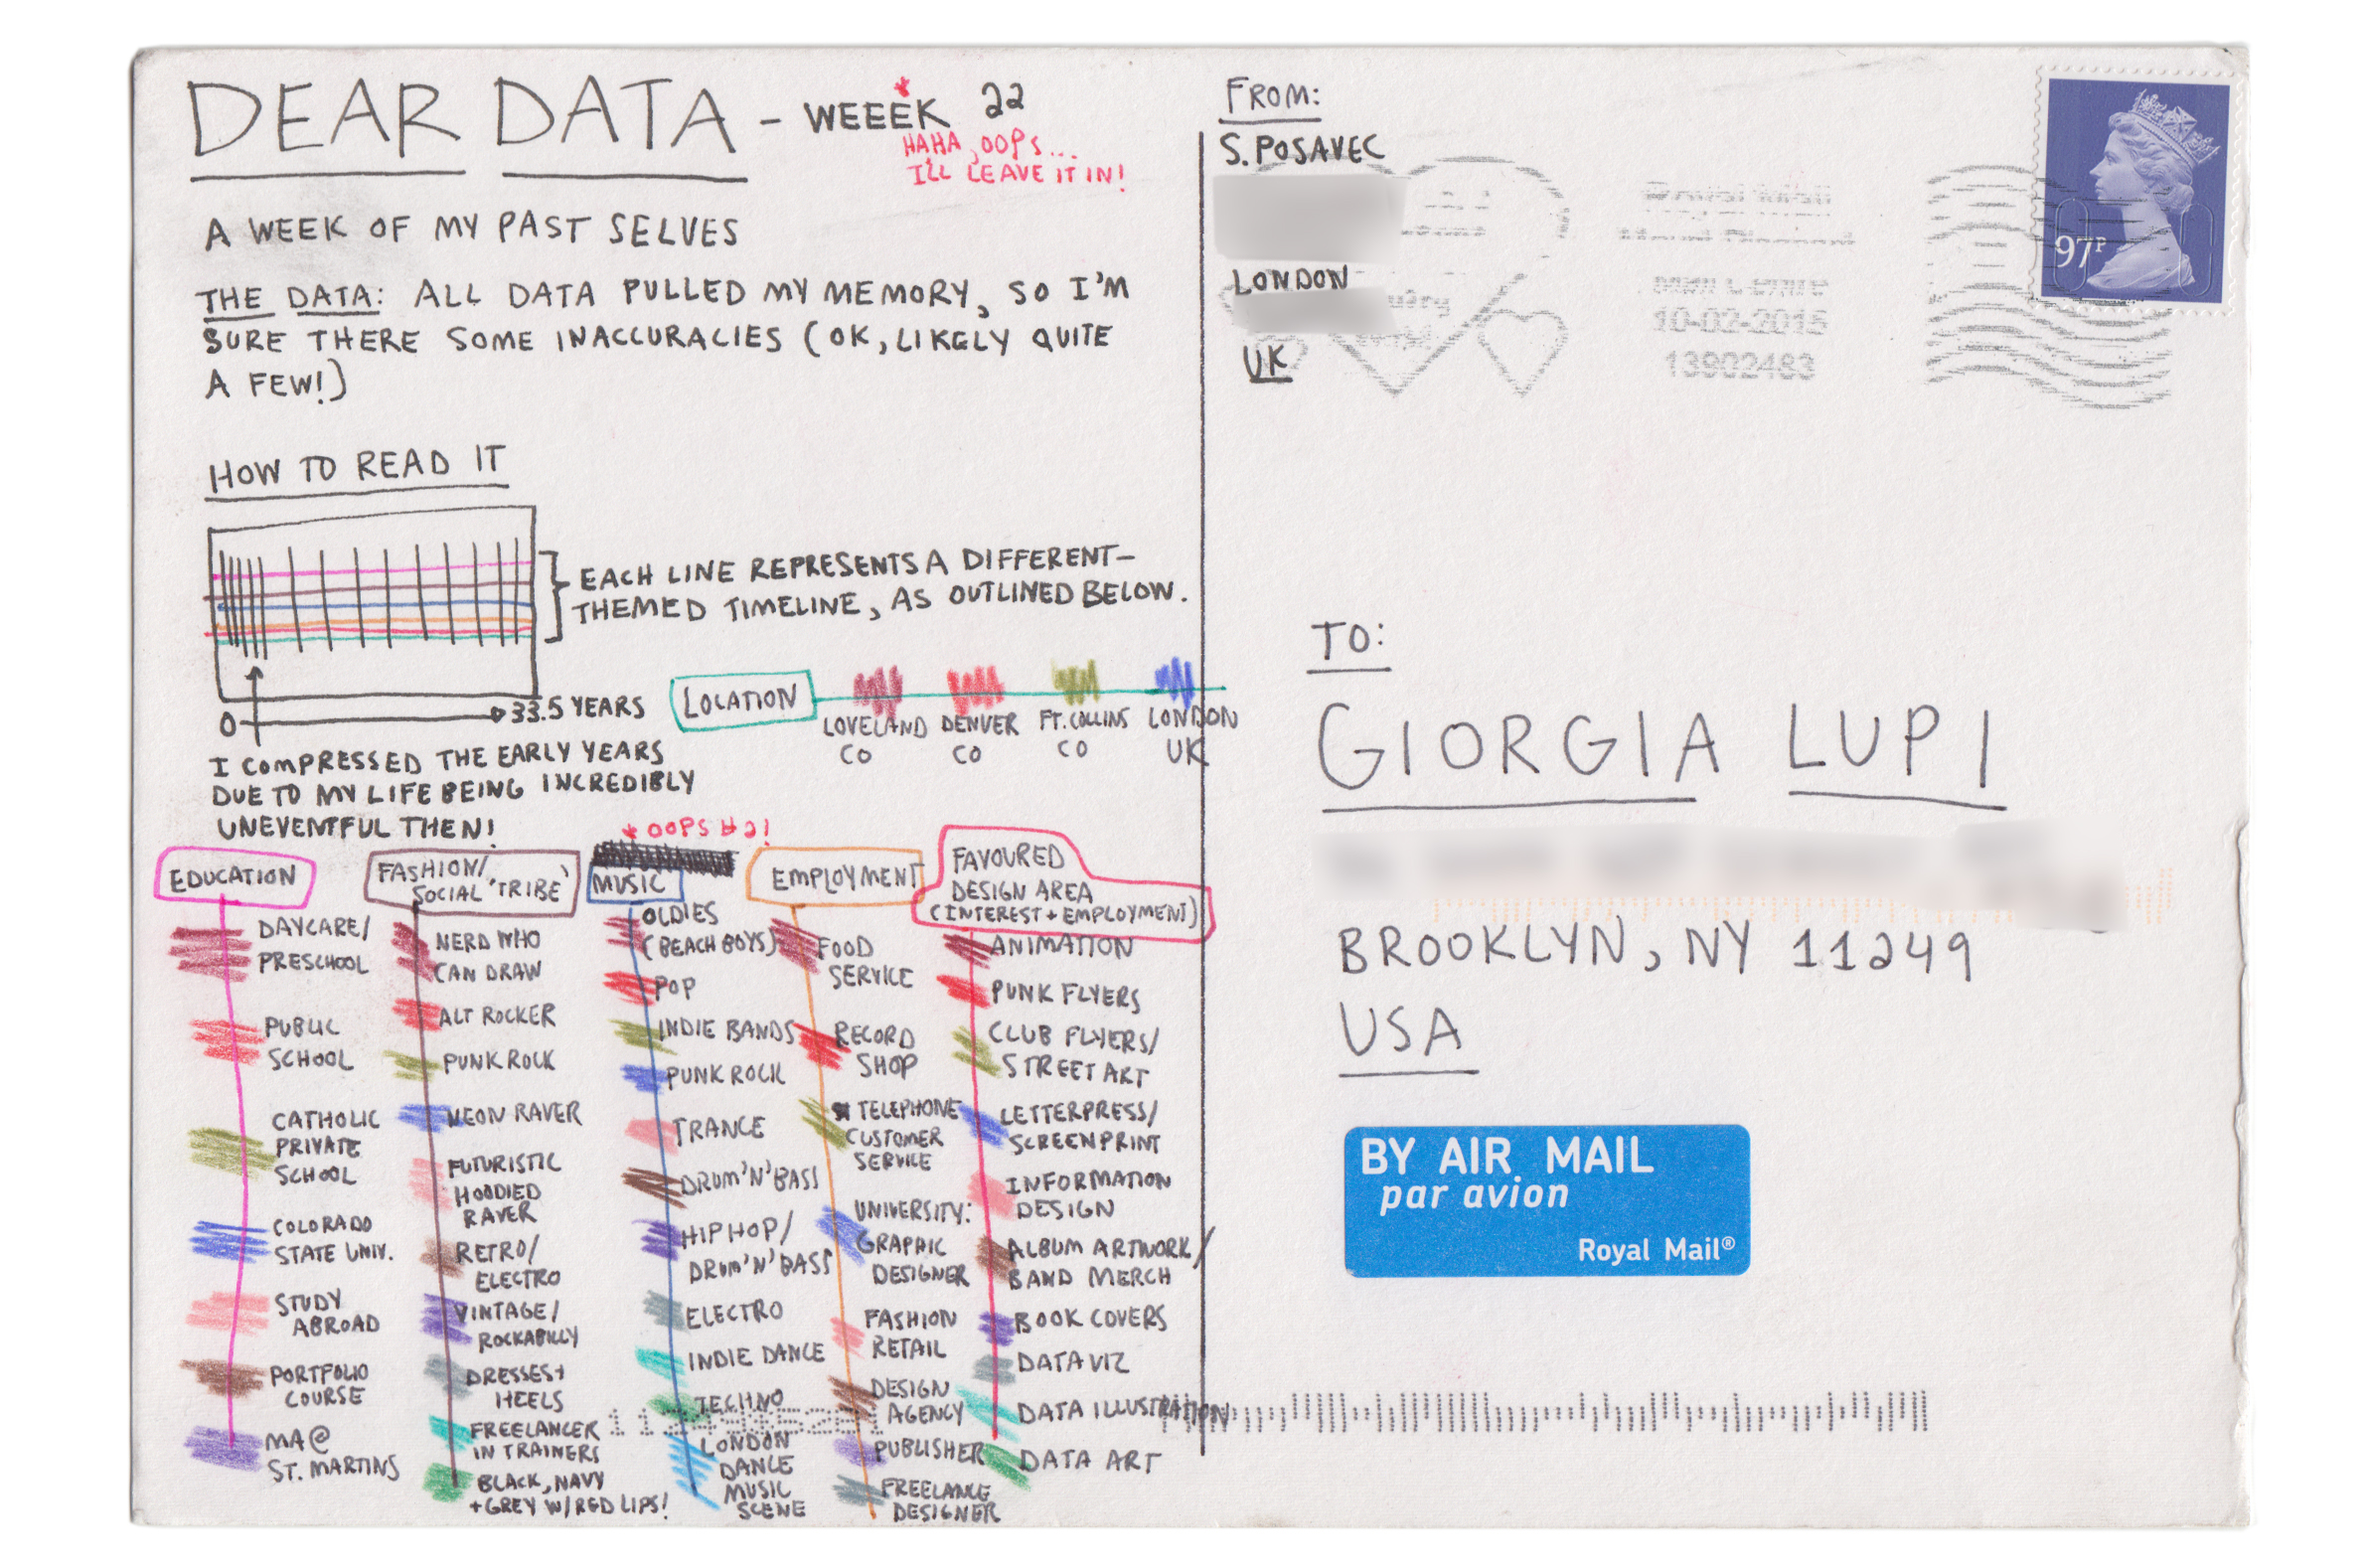 DEAR DATA - WEEEK 22
*
HAHA, OOPS...
I'LL LEAVE IT IN!
A WEEK OF MY PAST SELVES
THE DATA: ALL DATA PULLED MY MEMORY, SO I'M
SURE THERE SOME INACCURACIES (OK, LIKELY QUITE
A FEW!)
HOW TO READ IT
EACH LINE REPRESENTS A DIFFERENT-
THEMED TIMELINE, AS OUTLINED BELOW.
0
33.5 YEARS
I COMPRESSED THE EARLY YEARS
DUE TO MY LIFE BEING INCREDIBLY
UNEVENTFUL THEN!
LOCATION
LOVELAND
CO
DENVER
CO
FT. COLLINS
CO
LONDON
UK
EDUCATION
DAYCARE/
PRESCHOOL
PUBLIC
SCHOOL
CATHOLIC
PRIVATE
SCHOOL
COLORADO
STATE UNIV.
STUDY
ABROAD
PORTFOLIO
COURSE
MA@
ST. MARTINS
FASHION/
SOCIAL 'TRIBE'
NERD WHO
CAN DRAW
ALT ROCKER
PUNK ROCK
NEON RAVER
FUTURISTIC
HOODIED
RAVER
RETRO/
ELECTRO
VINTAGE/
ROCKABILLY
DRESSES+
HEELS
FREELANCER
IN TRAINERS
BLACK, NAVY
+GREY W/RED LIPS!
* OOPS HA!
MUSIC
OLDIES
(BEACH BOYS)
POP
INDIE BANDS
PUNK ROCK
TRANCE
DRUM'N'BASS
HIP HOP/
DRUM'N'BASS
ELECTRO
INDIE DANCE
TECHNO
LONDON
DANCE
MUSIC
SCENE
EMPLOYMENT
FOOD
SERVICE
RECORD
SHOP
TELEPHONE
CUSTOMER
SERVICE
UNIVERSITY:
GRAPHIC
DESIGNER
FASHION
RETAIL
DESIGN
AGENCY
PUBLISHER
FREELANCE
DESIGNER
FAVOURED
DESIGN AREA
(INTEREST + EMPLOYMENT)
ANIMATION
PUNK FLYERS
CLUB FLYERS/
STREET ART
LETTERPRESS/
SCREENPRINT
INFORMATION
DESIGN
ALBUM ARTWORK/
BAND MERCH
BOOK COVERS
DATA VIZ
DATA ILLUSTRATION
DATA ART
FROM:
S. POSAVEC
LONDON
UK
Royal Mail
10-02-2015
13902483
97P
TO:
GIORGIA LUPI
BROOKLYN, NY 11249
USA
BY AIR MAIL
par avion
Royal Mail®